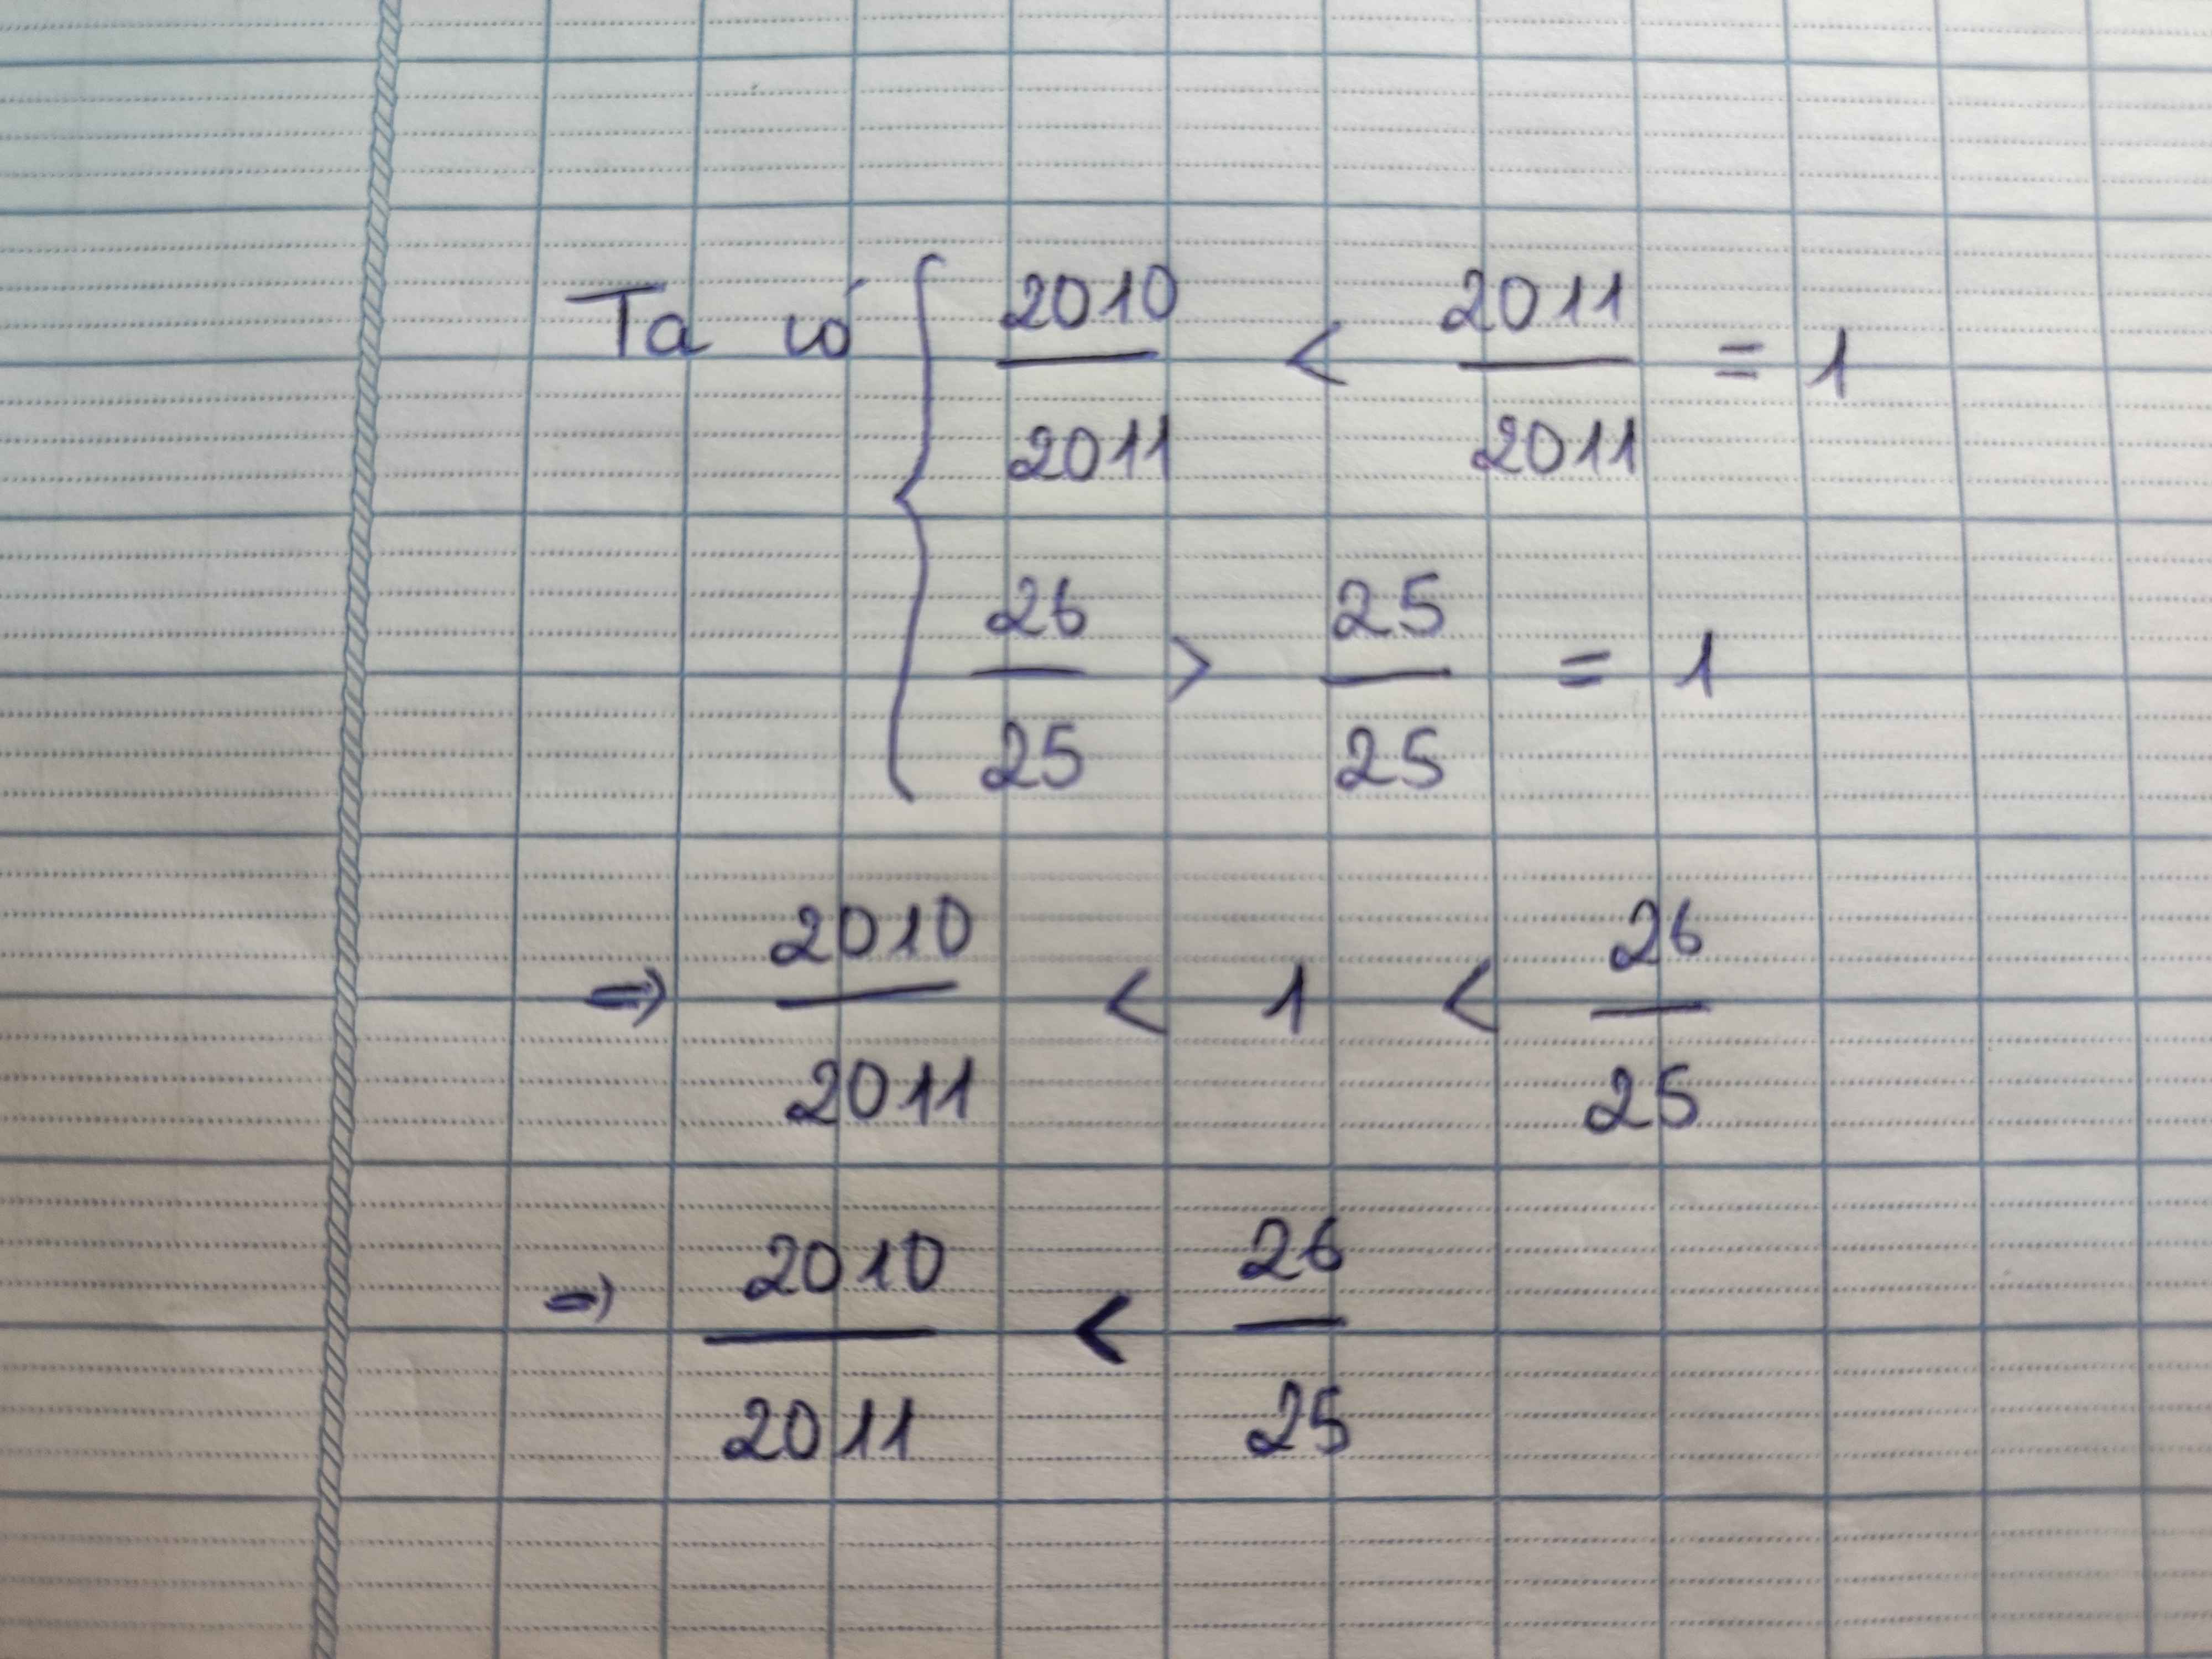 Ta có { 2010/2011 < 2011/2011 = 1
26/25 > 25/25 = 1
⇒ 2010/2011 < 1 < 26/25
⇒ 2010/2011 < 26/25